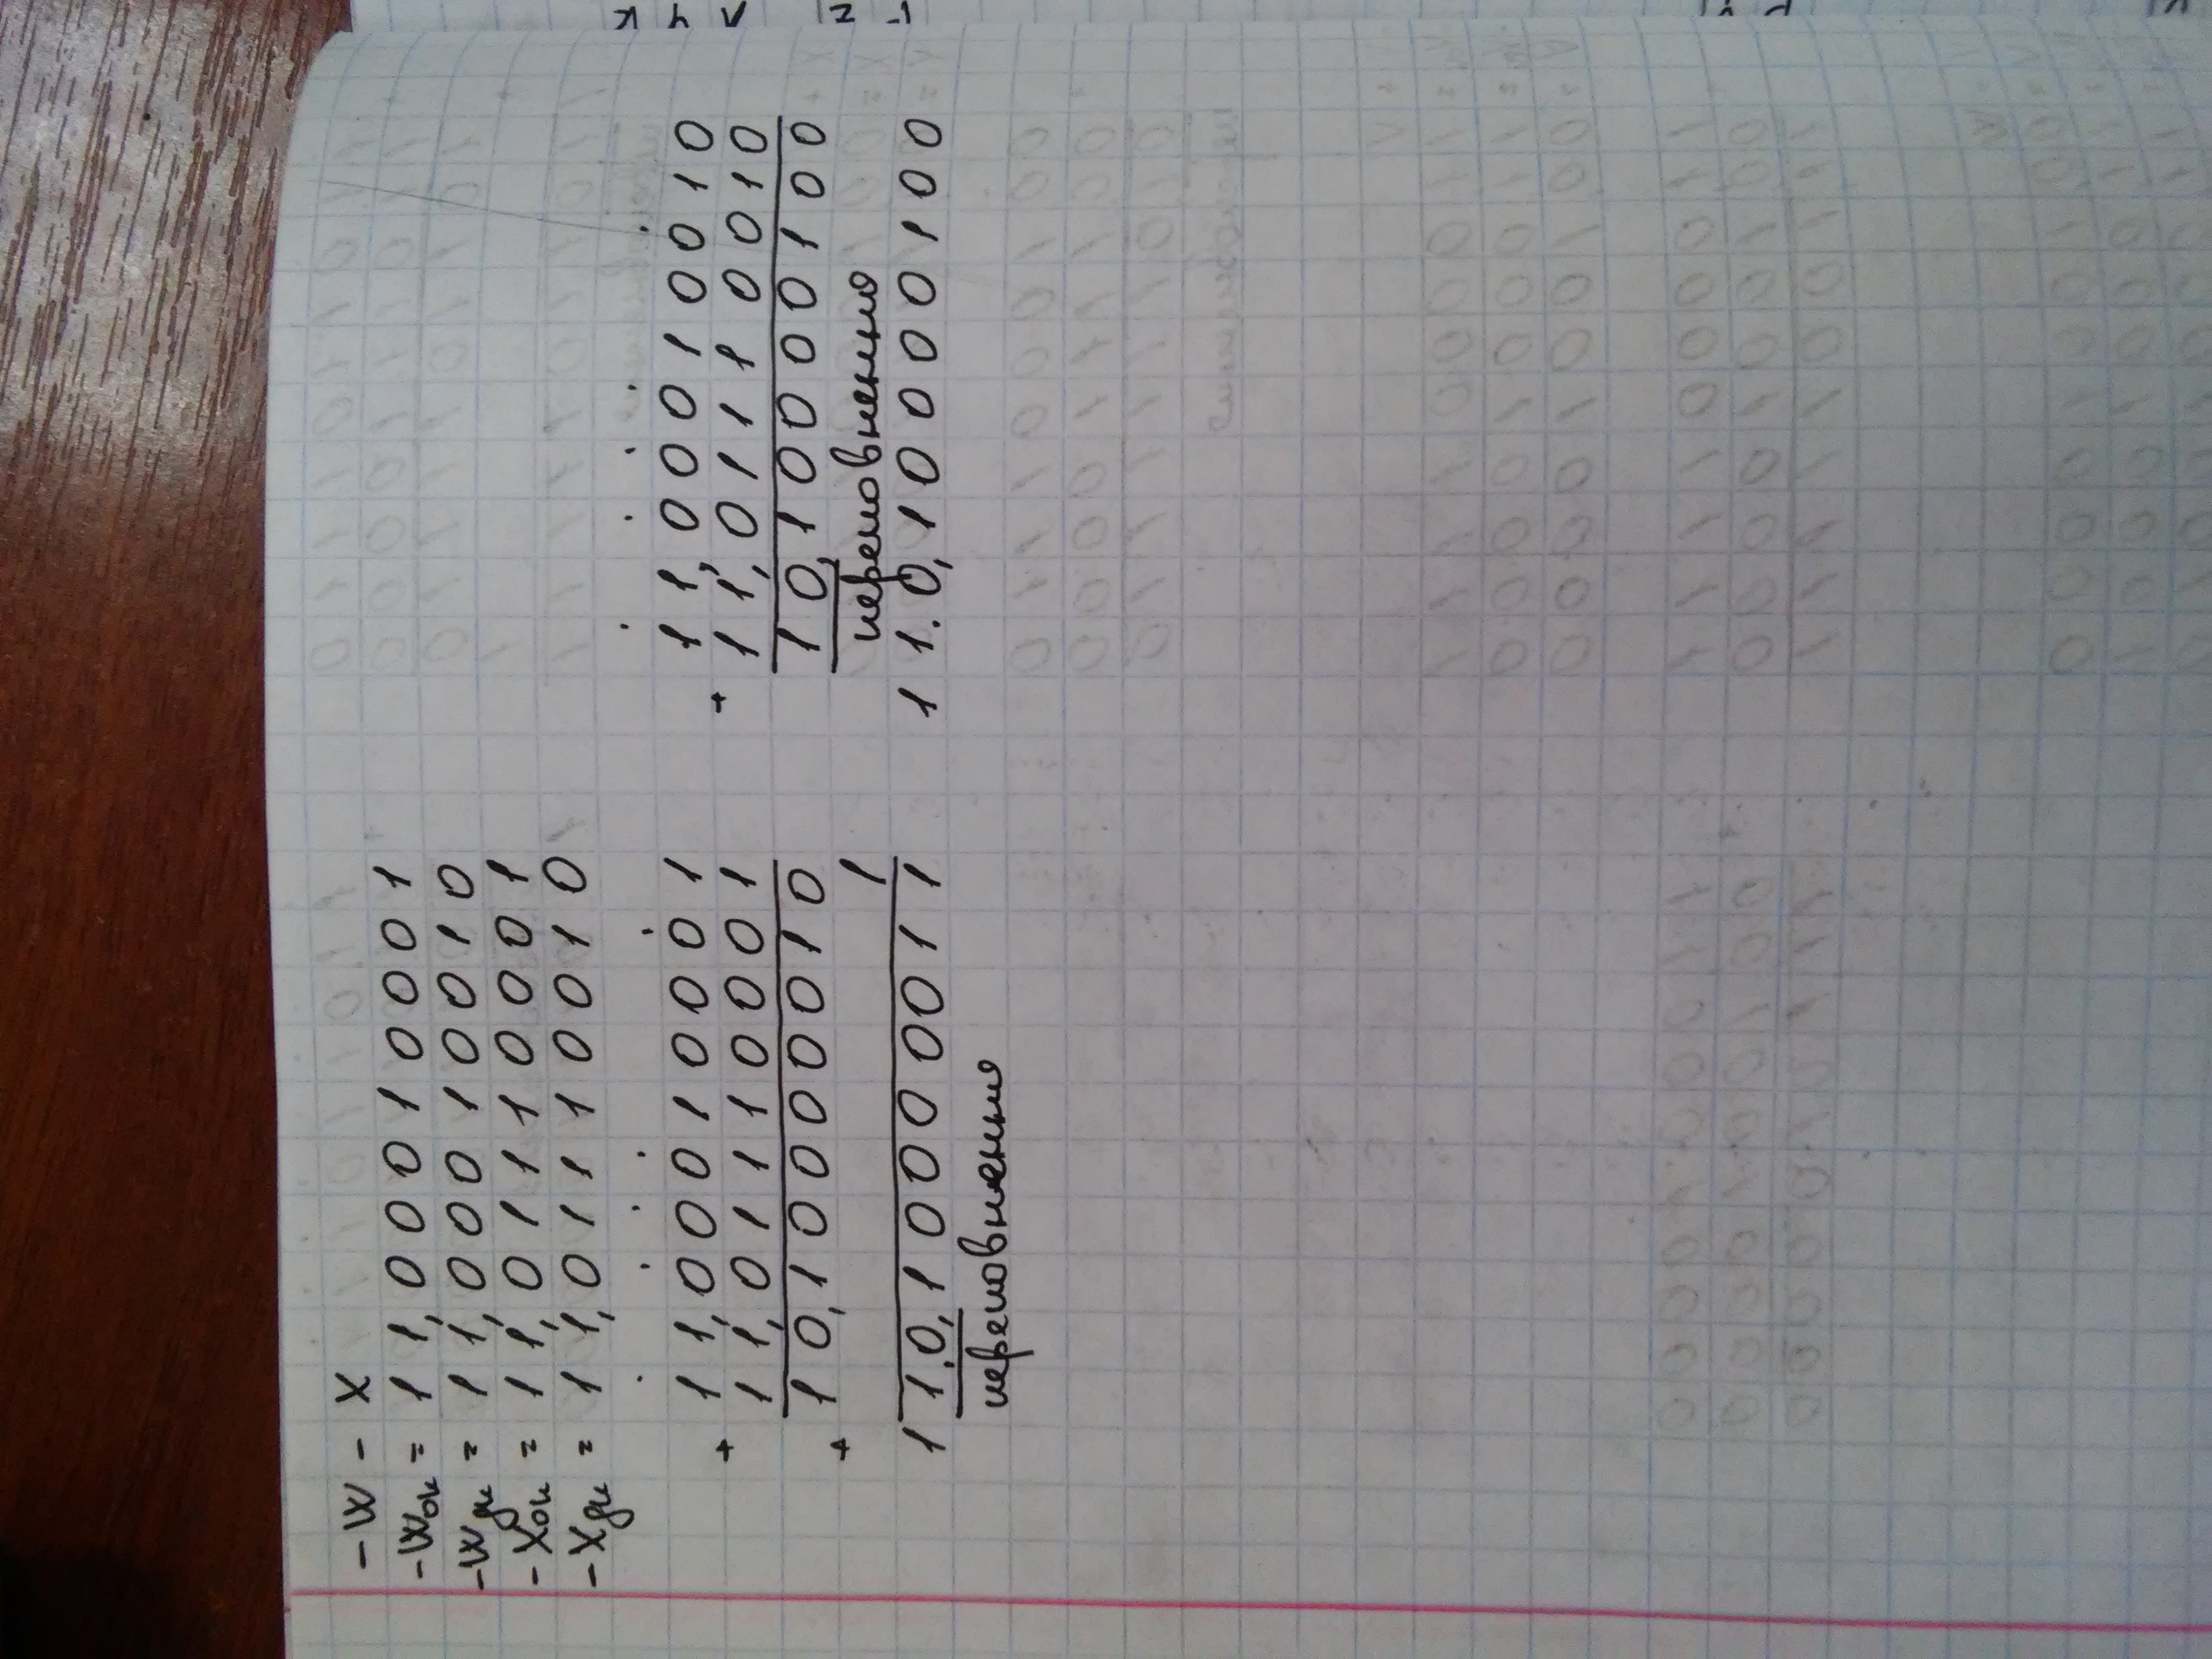 -W - X
-Wок = 11,00010001
-Wдк = 11,00010010
-Xок = 11,01110001
-Xдк = 11,01110010
11,00010001
+ 11,01110001
10,10000010
+ 1
1 1.0,10000011
переповнення
11,00010010
+ 11,01110010
10,10000100
переповнення
1 1.0,10000100